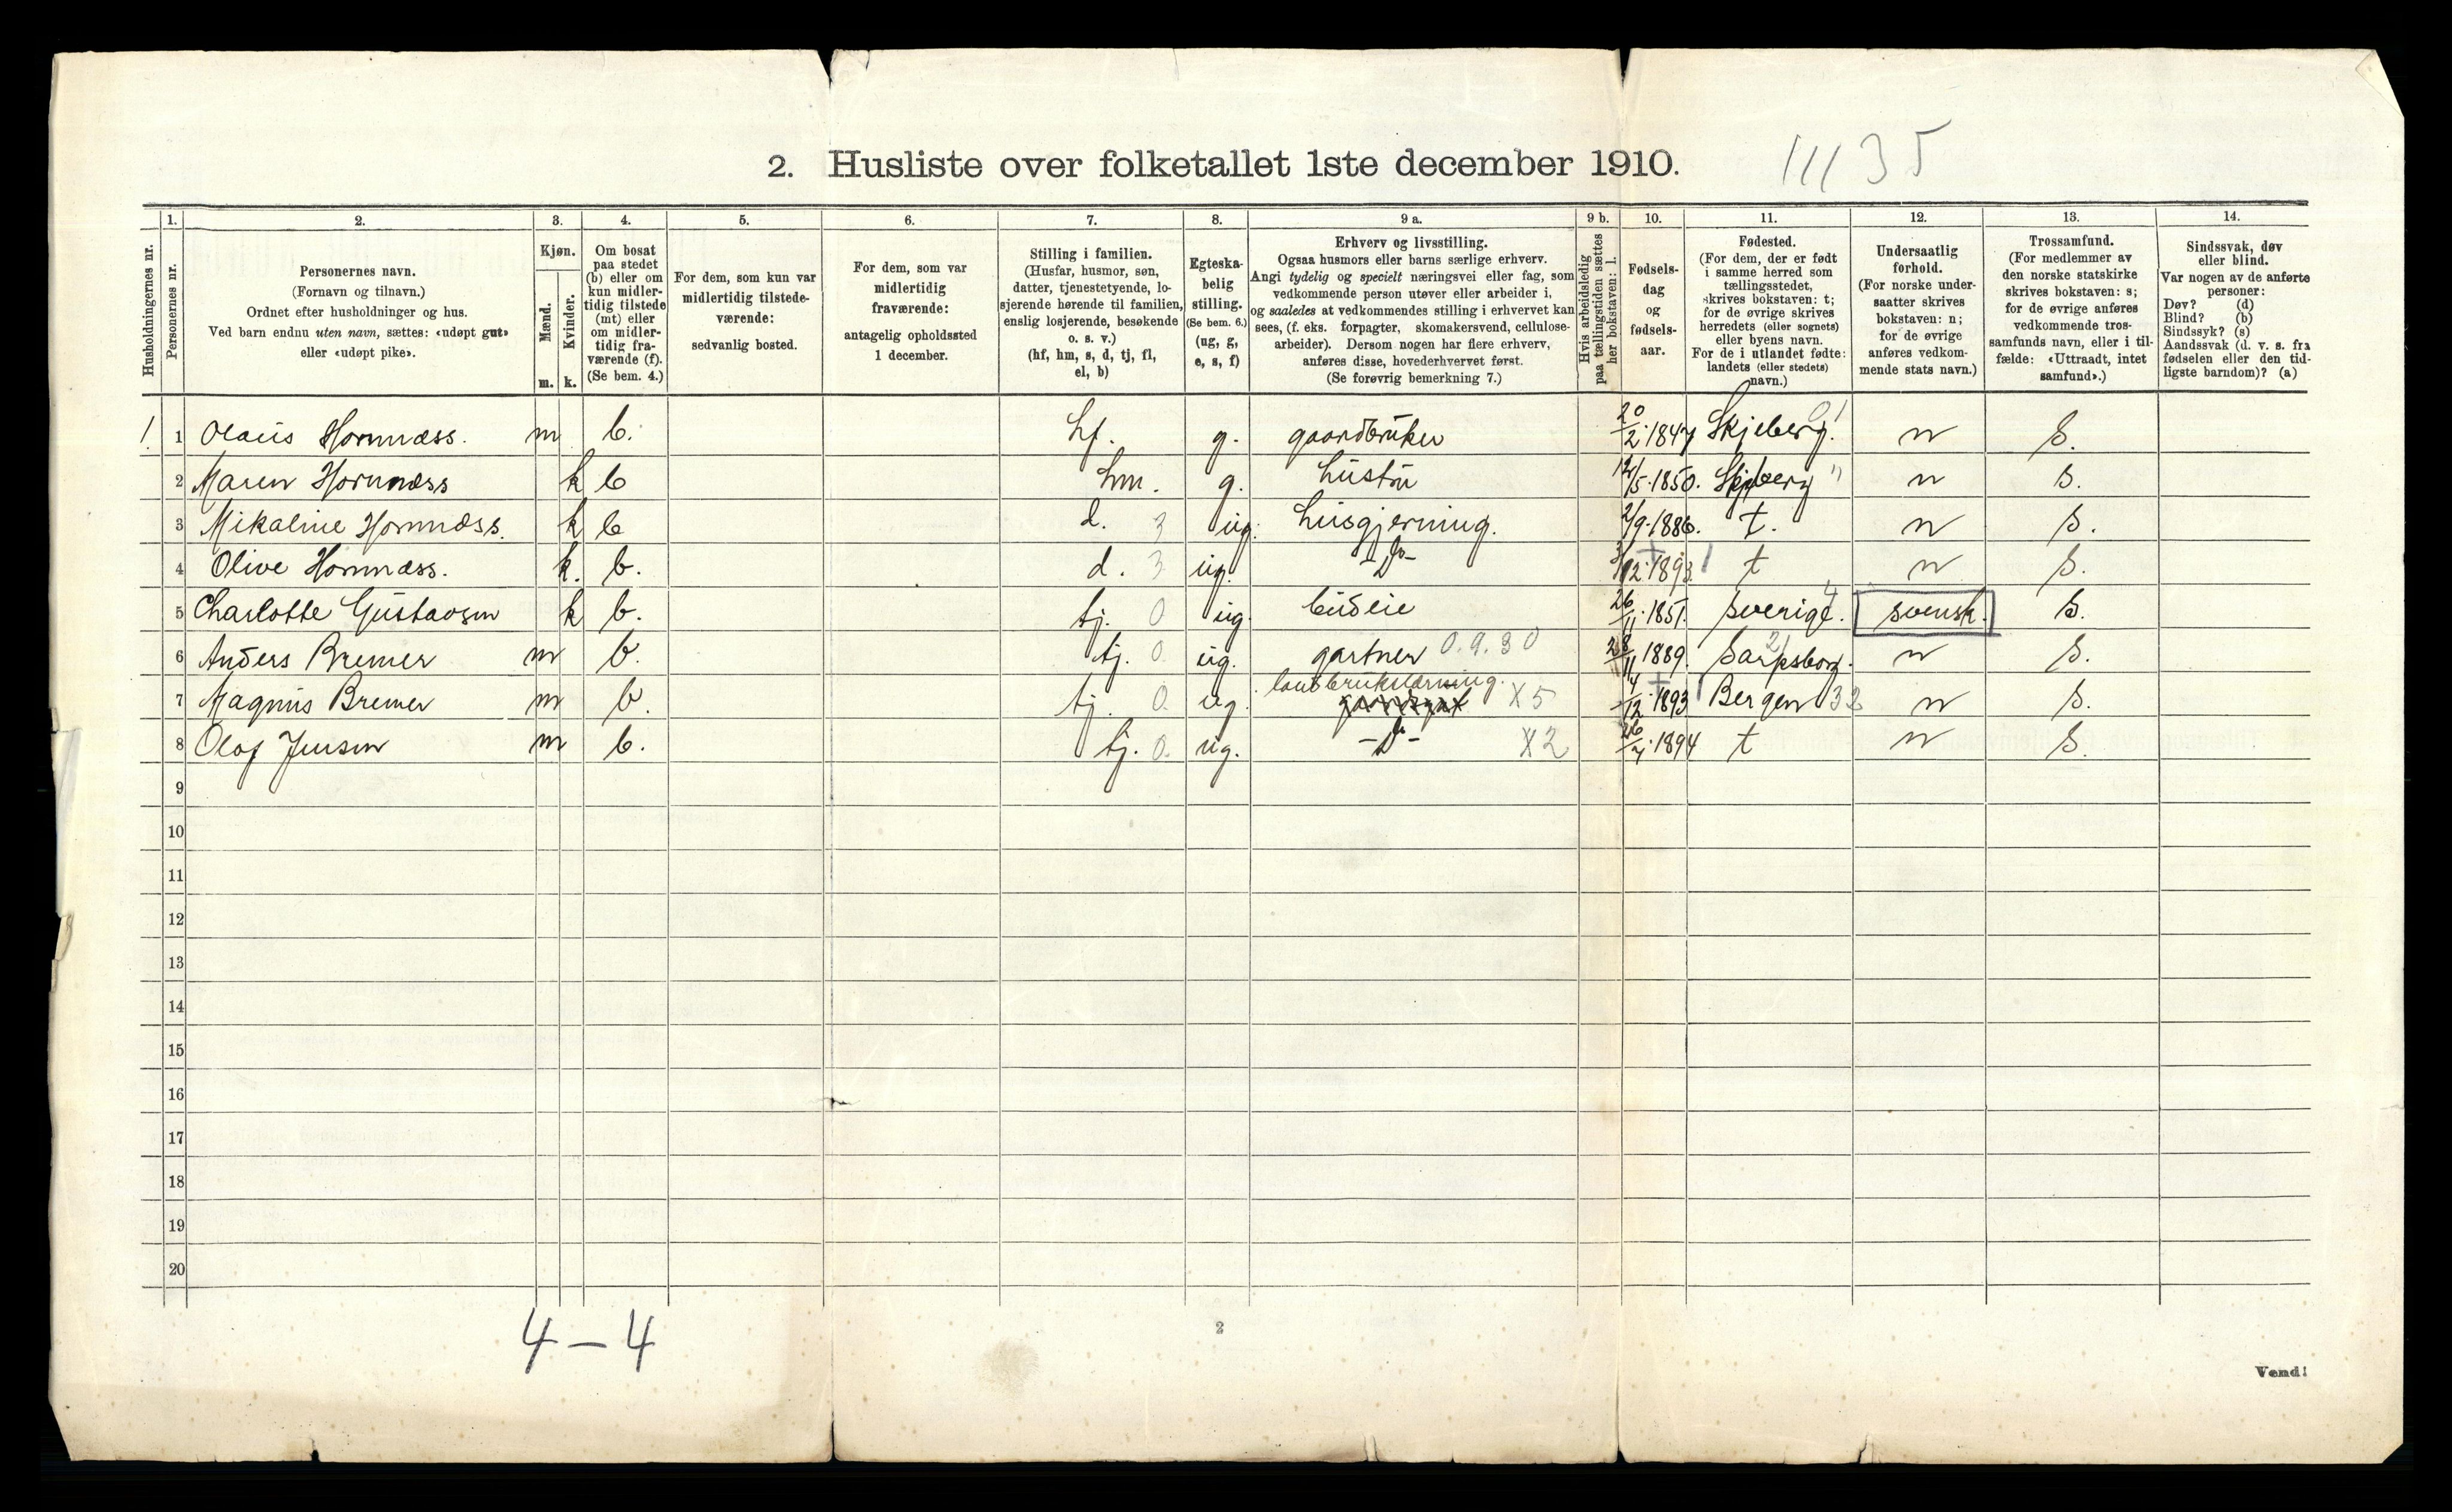 2. Husliste over folketallet 1ste december 1910.
11135
Husholdningernes nr.
1.
Personernes nr.
2.
Personernes navn.
(Fornavn og tilnavn.)
Ordnet efter husholdninger og hus.
Ved barn endnu uten navn, sættes: «udøpt gut»
eller «udøpt pike».
3.
Kjøn.
Mænd.
m.
Kvinder.
k.
4.
Om bosat
paa stedet
(b) eller om
kun midler-
tidig tilstede
(mt) eller
om midler-
tidig fra-
værende (f).
(Se bem. 4.)
5.
For dem, som kun var
midlertidig tilstede-
værende:
sedvanlig bosted.
6.
For dem, som var
midlertidig
fraværende:
antagelig opholdssted
1 december.
7.
Stilling i familien.
(Husfar, husmor, søn,
datter, tjenestetyende, lo-
sjerende hørende til familien,
enslig losjerende, besøkende
o. s. v.)
(hf, hm, s, d, tj, fl,
el, b)
8.
Egteska-
belig
stilling.
(Se bem. 6.)
(ug, g,
e, s, f)
9 a.
Erhverv og livsstilling.
Ogsaa husmors eller barns særlige erhverv.
Angi tydelig og specielt næringsvei eller fag, som
vedkommende person utøver eller arbeider i,
og saaledes at vedkommendes stilling i erhvervet kan
sees, (f. eks. forpagter, skomakersvend, cellulose-
arbeider). Dersom nogen har flere erhverv,
anføres disse, hovederhvervet først.
(Se forøvrig bemerkning 7.)
9 b.
Hvis arbeidsledig
paa tællingstiden sættes
her bokstaven: l.
10.
Fødsels-
dag
og
fødsels-
aar.
11.
Fødested.
(For dem, der er født
i samme herred som
tællingsstedet,
skrives bokstaven: t;
for de øvrige skrives
herredets (eller sognets)
eller byens navn.
For de i utlandet fødte:
landets (eller stedets)
navn.)
12.
Undersaatlig
forhold.
(For norske under-
saatter skrives
bokstaven: n;
for de øvrige
anføres vedkom-
mende stats navn.)
13.
Trossamfund.
(For medlemmer av
den norske statskirke
skrives bokstaven: s;
for de øvrige anføres
vedkommende tros-
samfunds navn, eller i til-
fælde: «Uttraadt, intet
samfund».)
14.
Sindssvak, døv
eller blind.
Var nogen av de anførte
personer:
Døv? (d)
Blind? (b)
Sindssyk? (s)
Aandssvak (d. v. s. fra
fødselen eller den tid-
ligste barndom)? (a)
1. 1 Olaus Hornnæss. m b. hf. g. gaardbruker 20/2.1847 Skjeberg. 01 n s.
2 Maren Hornnæss k b hm. g. hustru 12/5.1850. Skjeberg " n s.
3 Mikaline Hornnæss. k b d. 3 ug. husgjerning. 2/9.1886. t. n s.
4 Olive Hornnæss. k. b. d. 3 ug. -do- 3/12.1893. t n s.
5 Charlotte Gustavsen k b. tj. 0 ug. budeie 26/11.1851. sverige. 4 svensk. s.
6 Anders Bremer m b. tj. 0. ug. gartner 0.9.30 28/11 1889. Sarpsborg. 21 n s.
7 Magnus Bremer m b. tj. 0. ug. landbrukslærning. X5 4/12.1893 Bergen 32 n s.
8 Olaf Jensen m b. tj. 0. ug. -do- X2 26/7.1894 t n s.
9
10
11
12
13
14
15
16
17
18
19
20
4 - 4
2
Vend!